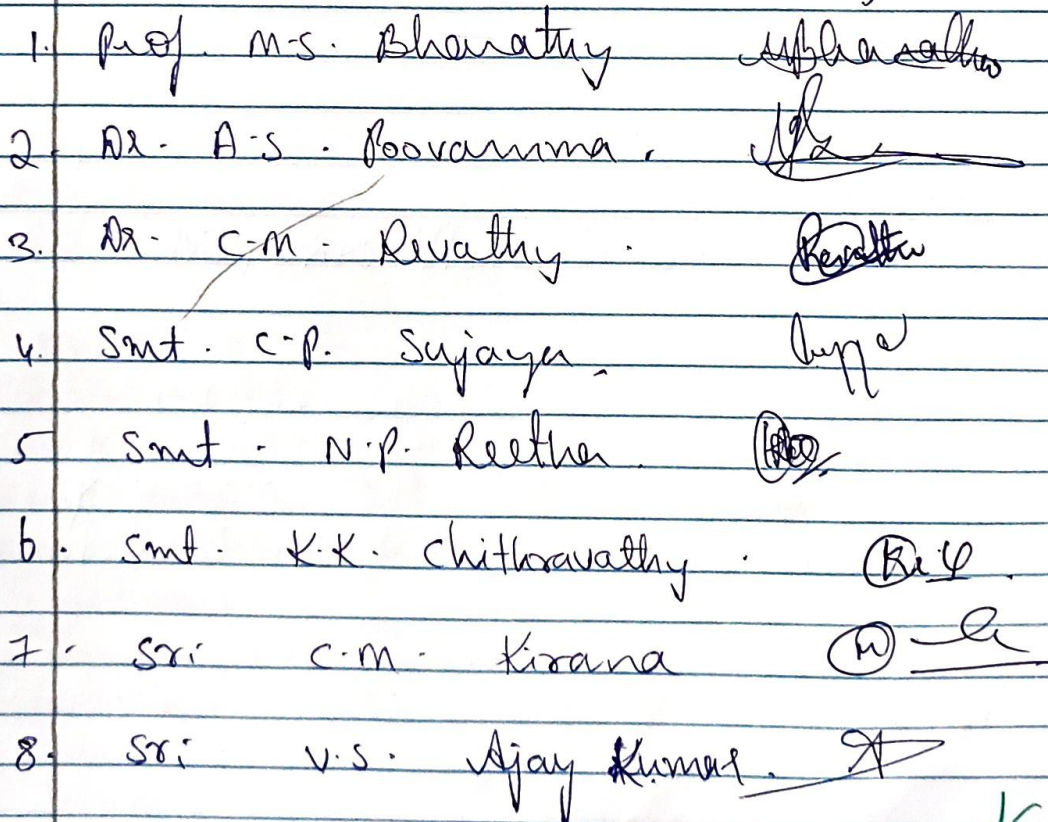 1. Prof. M.S. Bharathy
2. Dr. A.S. Poovamma.
3. Dr. C.M. Revathy.
4. Smt. C.P. Sujaya.
5 Smt. N.P. Reetha.
6. Smt. K.K. Chithravathy.
7. Sri C.M. Kirana
8. Sri V.S. Ajay Kumar.